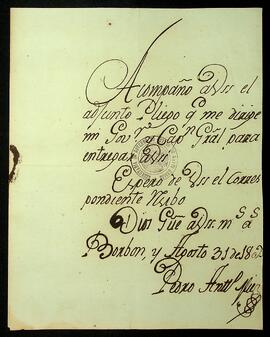 Acompaño a Vss el
adjunto Pliego q me dirige
mi Gov.r y Cap.n Gral. para
entregar a Vss
Espero de Vss el Corres
pondiente Recibo
Dios Gue a Vss m.s a.s
Borbon, y Agosto 31 de
Pedro Ant.o